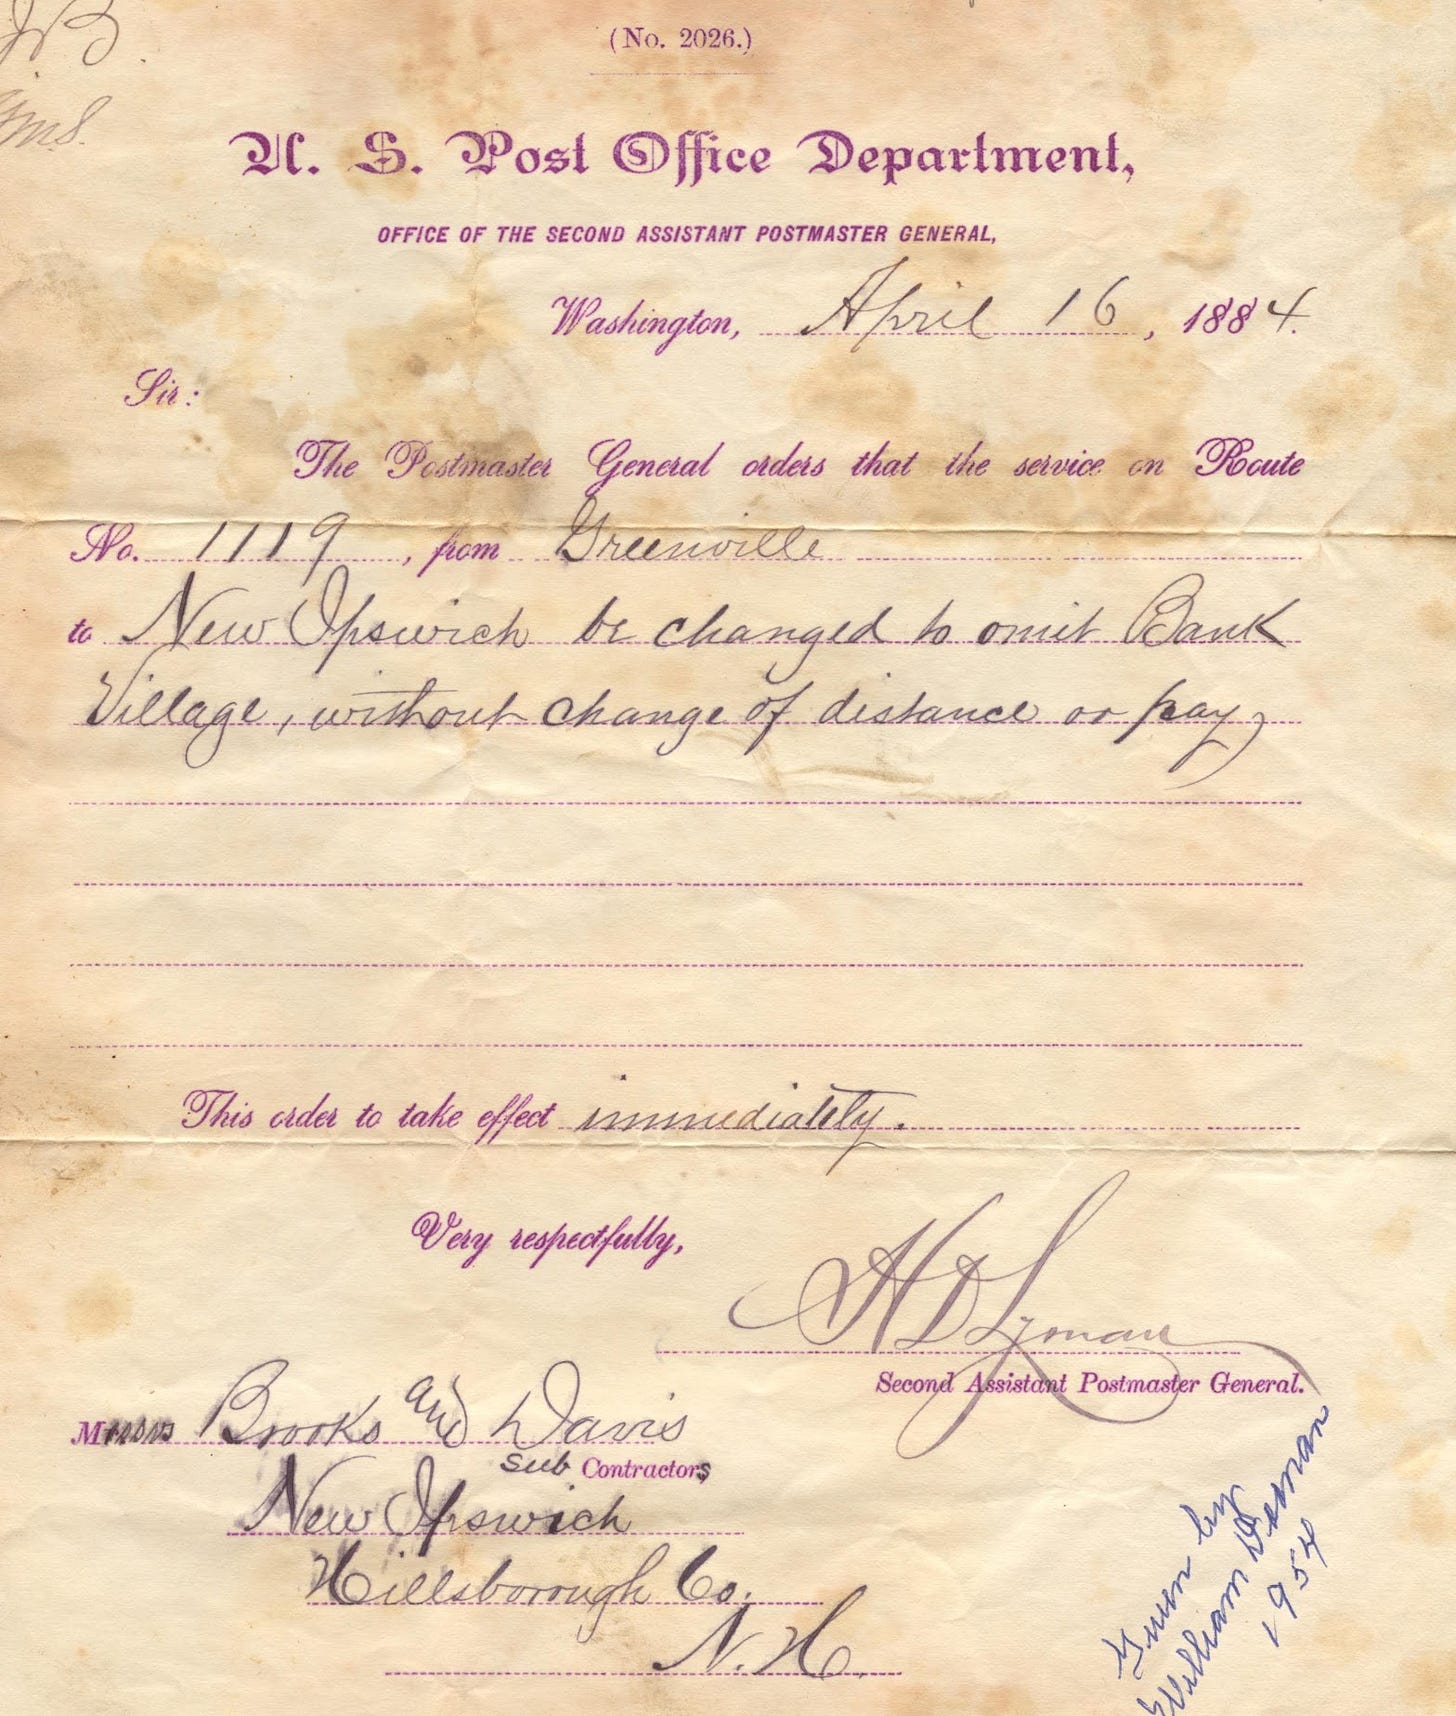 (No. 2026.)
U. S. Post Office Department,
OFFICE OF THE SECOND ASSISTANT POSTMASTER GENERAL,
Washington, April 16, 1884.
Sir:
The Postmaster General orders that the service on Route
No. 1119, from Greenville
to New Ipswich be changed to omit Bank
Village, without change of distance or pay,
This order to take effect immediately.
Very respectfully,
H D Lyman
Second Assistant Postmaster General.
Messrs Brooks and Davis
Sub Contractors
New Ipswich
Hillsborough Co.
N. H.
Given by
William
1954